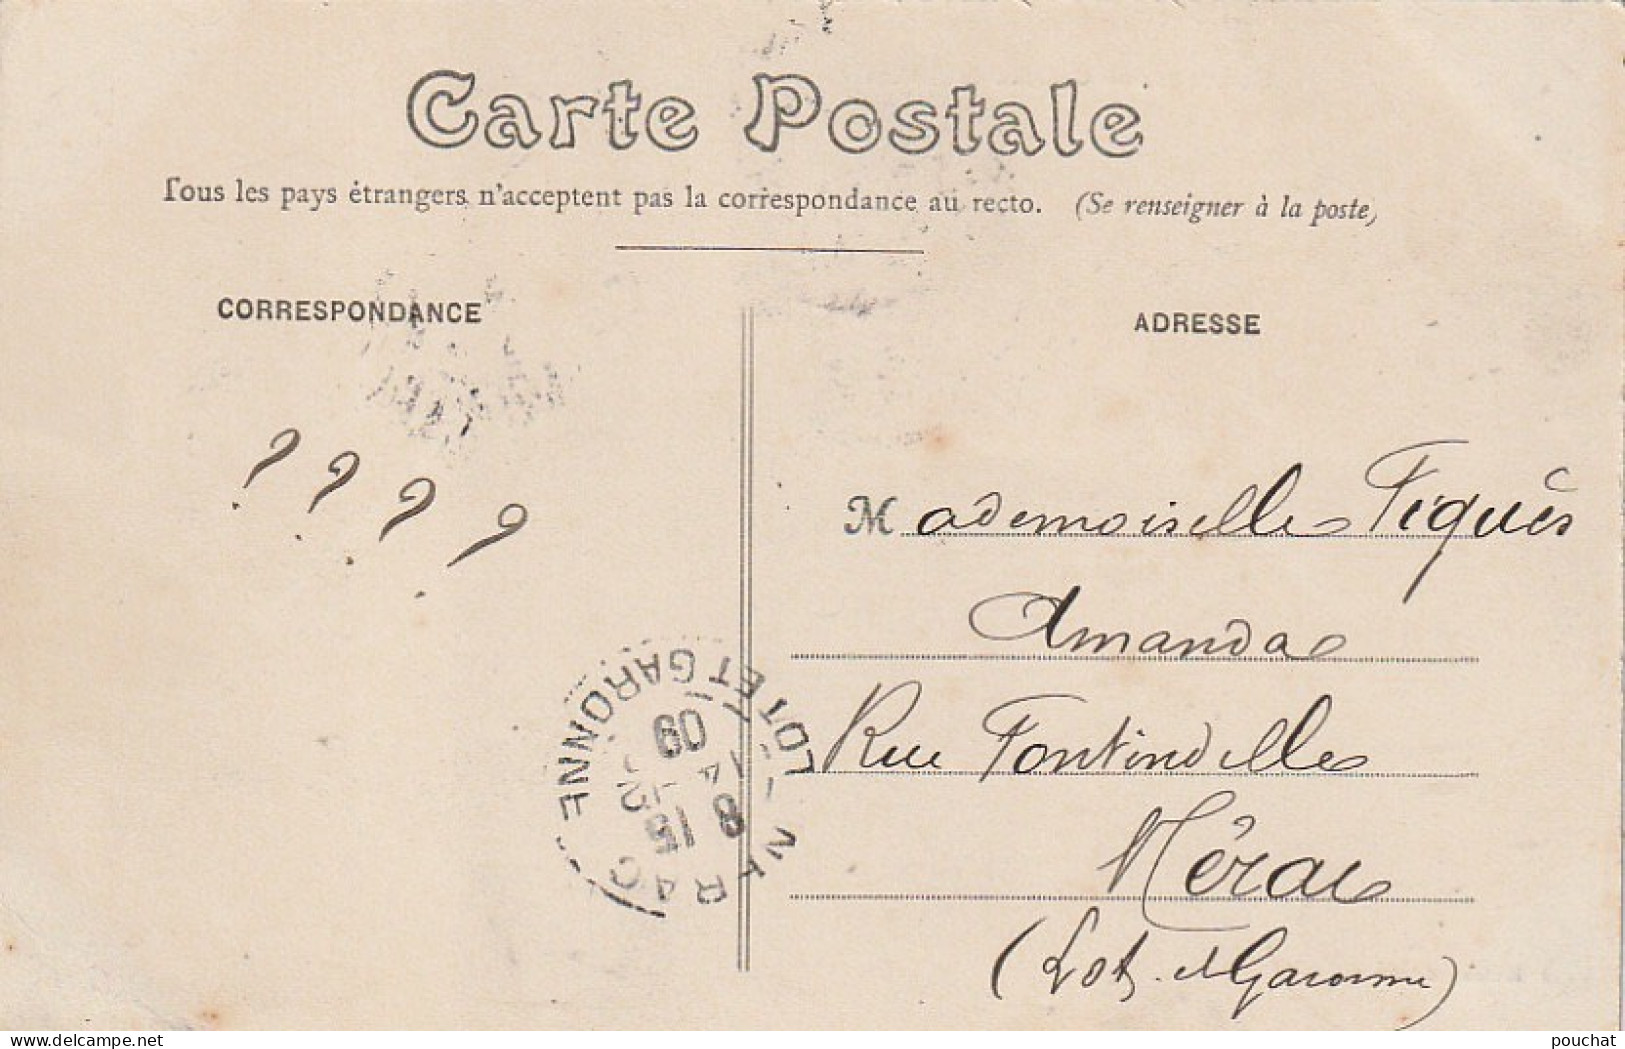 Carte Postale
Tous les pays étrangers n'acceptent pas la correspondance au recto. (Se renseigner à la poste)
CORRESPONDANCE
ADRESSE
? ? ? ?
Mademoiselle Fiquès
Amanda
Rue Fontindelle
Nérac
(Lot et Garonne)
NERAC
LOT ET GARONNE
8
15
09
www.delcampe.net
pouchat